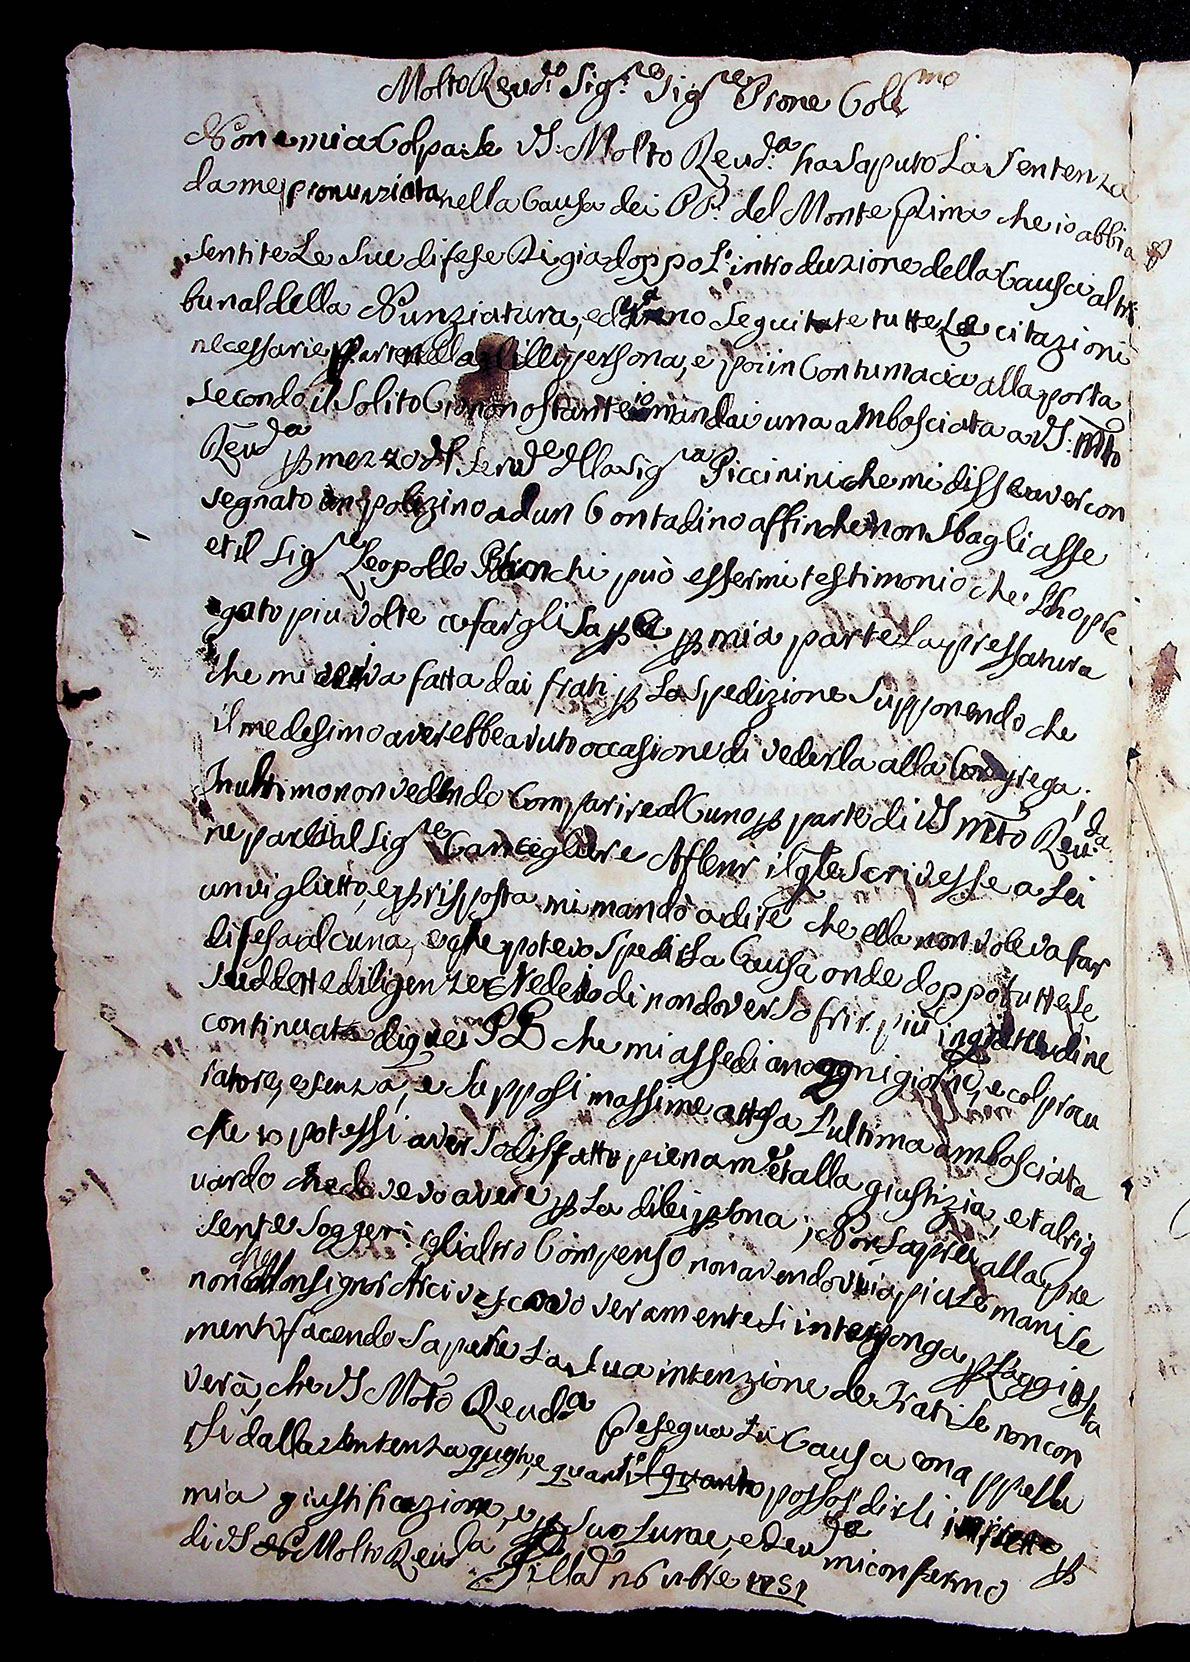 Molto Reud.o Sig.re Sig.re Prone Col.mo
Non e mia Colpa se VS. Molto Reud.a ha saputo La Sentenza
da me pronunziata nella Causa dei PP. del Monte Prima che io abbia
sentite Le sue difese Di gia doppo L'introduzione della Causa al tri
bunal della Nunziatura, ed seguitate tutte Le citazioni
necessarie persona, e poi in Contumacia alla porta
secondo il solito Cio non ostante io mandai una ambosciata a VS: Mto
Reud.a p mezzo d. Serud.e d'lla sig.ra Piccinini che mi disse aver con
segnato un polizino ad un Contadino affinche non sbagliasse
et il Sig.re Leopoldo Bianchi può essermi testimonio che L'ho pre
gato piu volte a fargli sape p mia parte La pressatura
che mi veniva fatta dai frati p La spedizione supponendo che
il medesimo averebbe avuto occasione di vederla alla Congrega.
In ultimo non vedendo Comparire alcuno p parte di VS Mto Reu.da
ne parlai al Sig.re Cancegliere il qle scrivesse a Lei
un vigliutto, e p risposta mi mandò a dire che ella non voleva far
difesa alcuna, e che potevo spedir La Causa onde doppo tutte Le
suddette diligenze di non dover sofrir più ingratitudine
continuata di quei PP che mi assediano ogni giorno, e col procu
ratore, e senza, e sapposi massime attesa L'ultima ambosciata
che io potessi aver sodisfatto pienam.te et alla giustizia, et al rig
uardo che dovevo avere p La di lei psona; Non saprei alla pre
sente soggerirgli altro Compenso non avendo via piu Le mani se
non che Monsignor Arcivescovo veramente s'interponga p L'aggiusta
mento facendo sapere La sua intenzione a Frati se non con
verà, che VS Molto Reud.a Prosegua La Causa con appella
rsi dalla sentenza quanto posso dirli p
mia giustificazione, e p suo Lume, e mi confermo
di VS Molto Reud.a Villa 26 1751